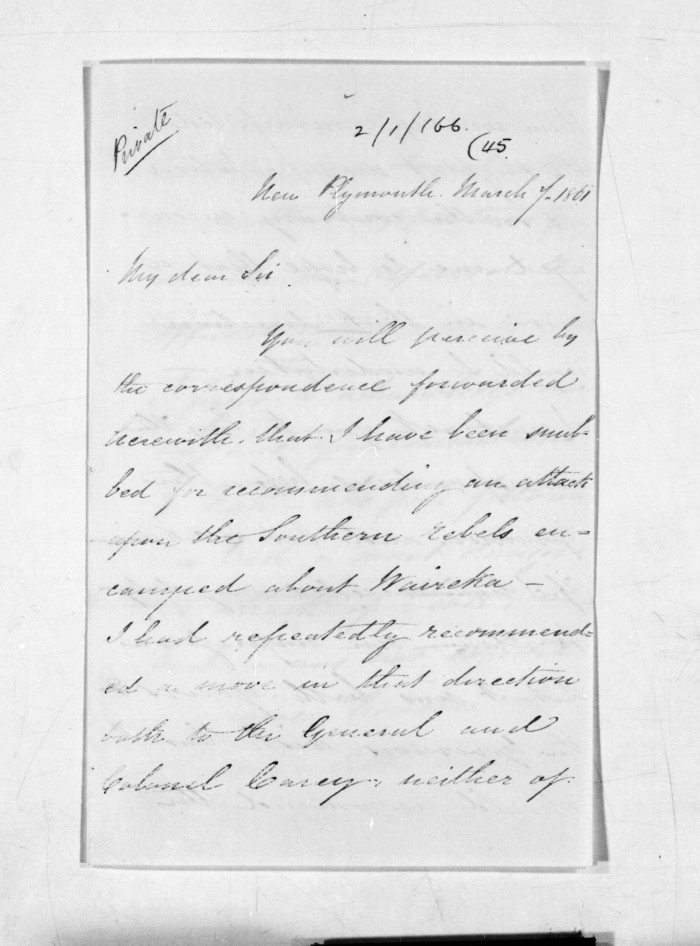 Private
2/1/166.
(45.
New Plymouth. March 7. 1861
My dear Sir
You will perceive by
the correspondence forwarded
herewith. that I have been snub-
bed for recommending an attack
upon the Southern rebels en-
camped about Waireka -
I had repeatedly recommend-
ed a move in that direction
both to the General and
Colonel Carey, neither of